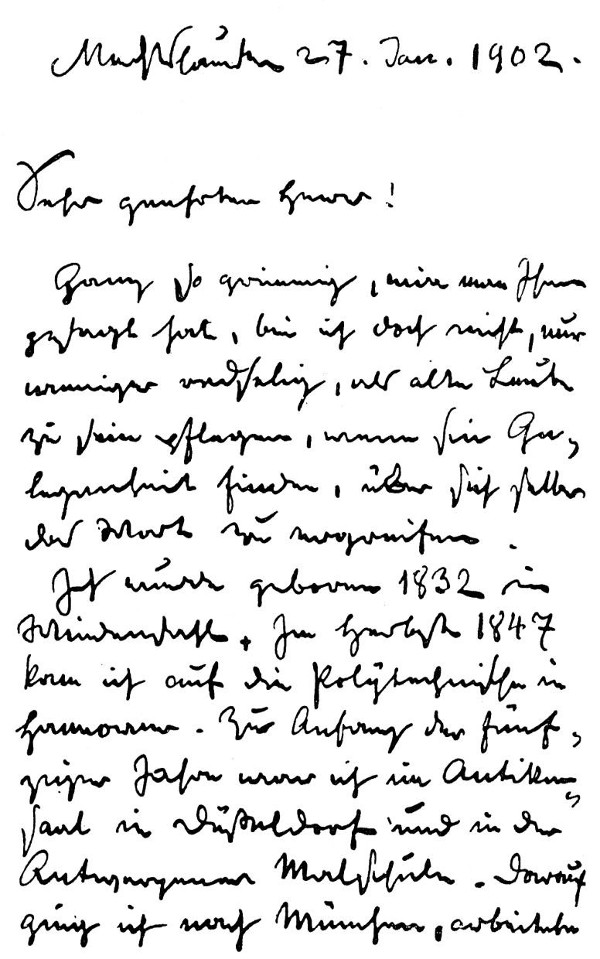 Mechtshausen 27. Jan. 1902.
Sehr geehrter Herr!
Ganz so grimmig, wie man Ihnen
gesagt hat, bin ich doch nicht, nur
weniger redselig, als alte Leute
zu sein pflegen, wenn sie Ge-
legenheit finden, über sich selber
das Wort zu ergreifen.
Ich wurde geboren 1832 in
Wiedensahl. Im Herbst 1847
kam ich auf die Polytechnische in
Hannover. Zu Anfang der fünf-
ziger Jahre war ich im Antiken-
saal in Düßeldorf und in der
Antwerpener Malschule. Darauf
ging ich nach München, arbeitete